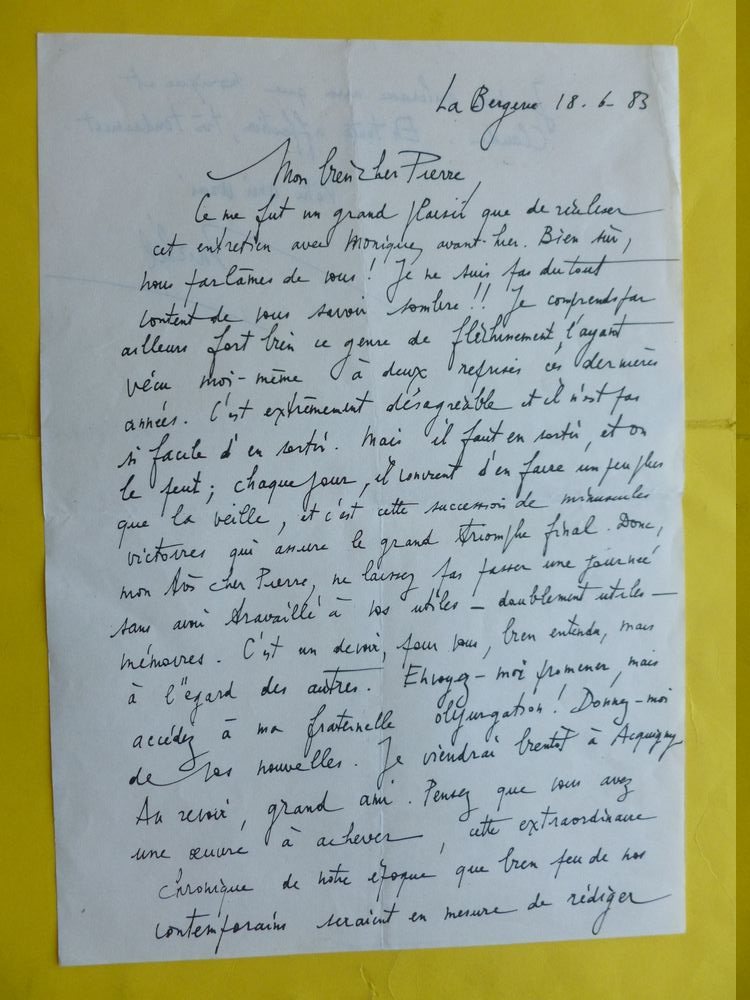 La Bergerie 18-6-83
Mon bien cher Pierre,
Ce me fut un grand plaisir que de réaliser
cet entretien avec Monique, avant-hier. Bien sûr,
nous parlâmes de vous ! Je ne suis pas du tout
content de vous savoir sombre !! Je comprends par
ailleurs fort bien ce genre de fléchissement, l'ayant
vécu moi-même à deux reprises ces dernières
années. C'est extrêmement désagréable et il n'est pas
si facile d'en sortir. Mais il faut en sortir, et on
le peut ; chaque jour, il convient d'en faire un peu plus
que la veille, et c'est cette succession de minuscules
victoires qui assure le grand triomphe final. Donc,
mon très cher Pierre, ne laissez pas passer une journée
sans avoir travaillé à vos utiles - doublement utiles -
mémoires. C'est un devoir, pour vous, bien entendu, mais
à l'égard des autres. Envoyez-moi promener, mais
accédez à ma fraternelle objurgation ! Donnez-moi
de vos nouvelles. Je viendrai bientôt à Acquigny
Au revoir, grand ami. Pensez que vous avez
une œuvre à achever, cette extraordinaire
chronique de notre époque que bien peu de nos
contemporains seraient en mesure de rédiger